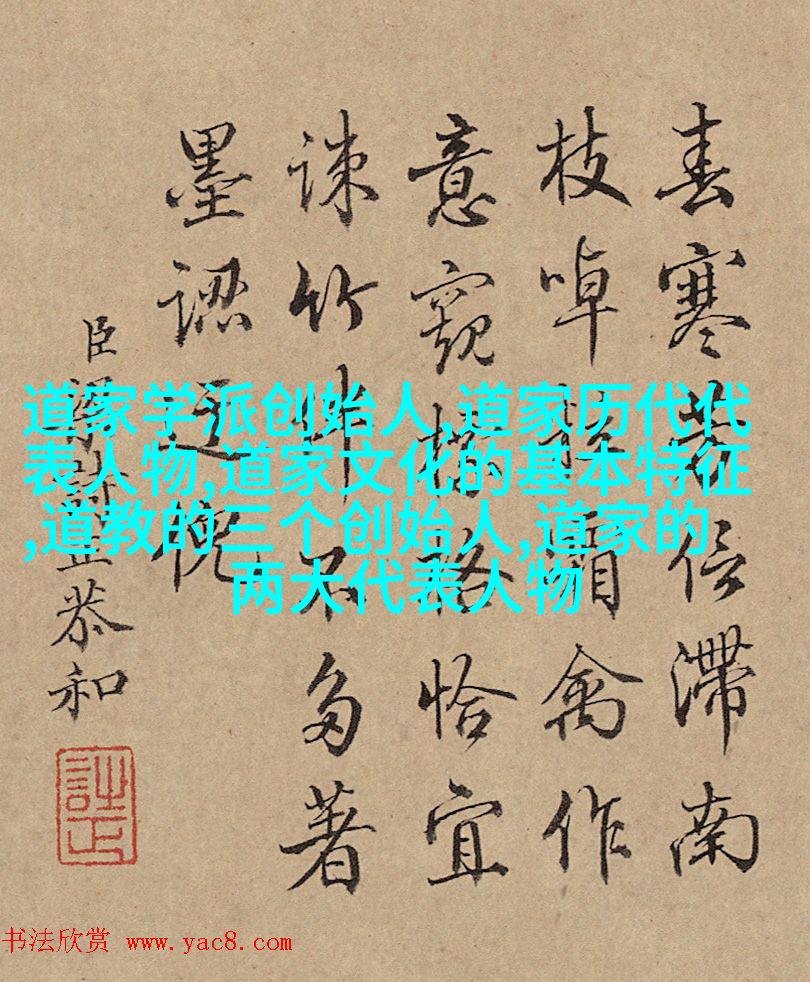 春寒芳信滯南
枝啅霜禽作
意窺橫路恰宜
疎竹外不多著
墨認
臣梁詩正恭和
詩正
道家学派创始人,道家历代代
表人物,道家文化的基本特征
,道教的三个创始人,道家的
两大代表人物
书法欣赏 www.yac8.com